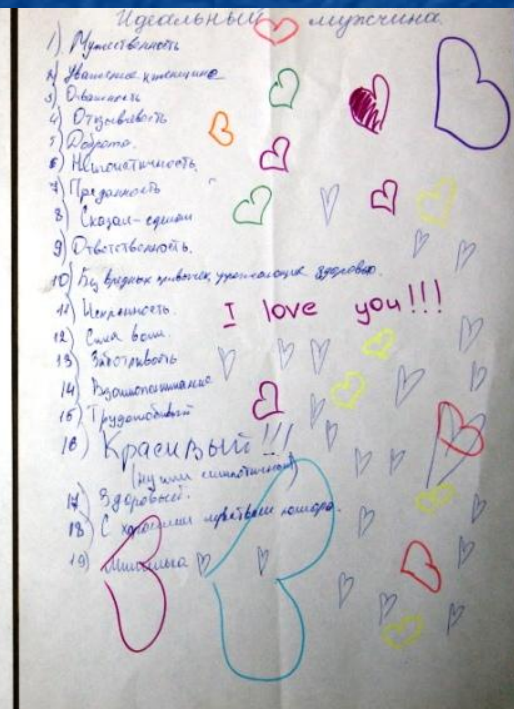 Идеальный мужчина.
1) Мужественность
2) Уважение к женщине
3) Отважность
4) Отзывчивость
5) Доброта.
6) Неэгоистичность.
7) Преданность
8) Сказал-сделал
9) Ответственность.
10) Без вредных привычек, угрожающих здоровью.
11) Искренность.
I love you!!!
12) Сила воли.
13) Заботливость
14) Взаимопонимание
15) Трудолюбивый
16) Красивый!!!
(ну или симпатичный)
17) Здоровый.
18) С хорошим чувством юмора.
19)